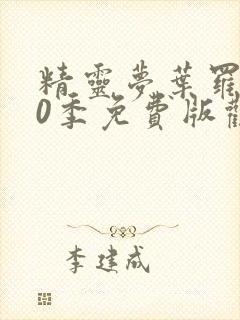 精靈夢葉羅
0季免費版觀
李建成